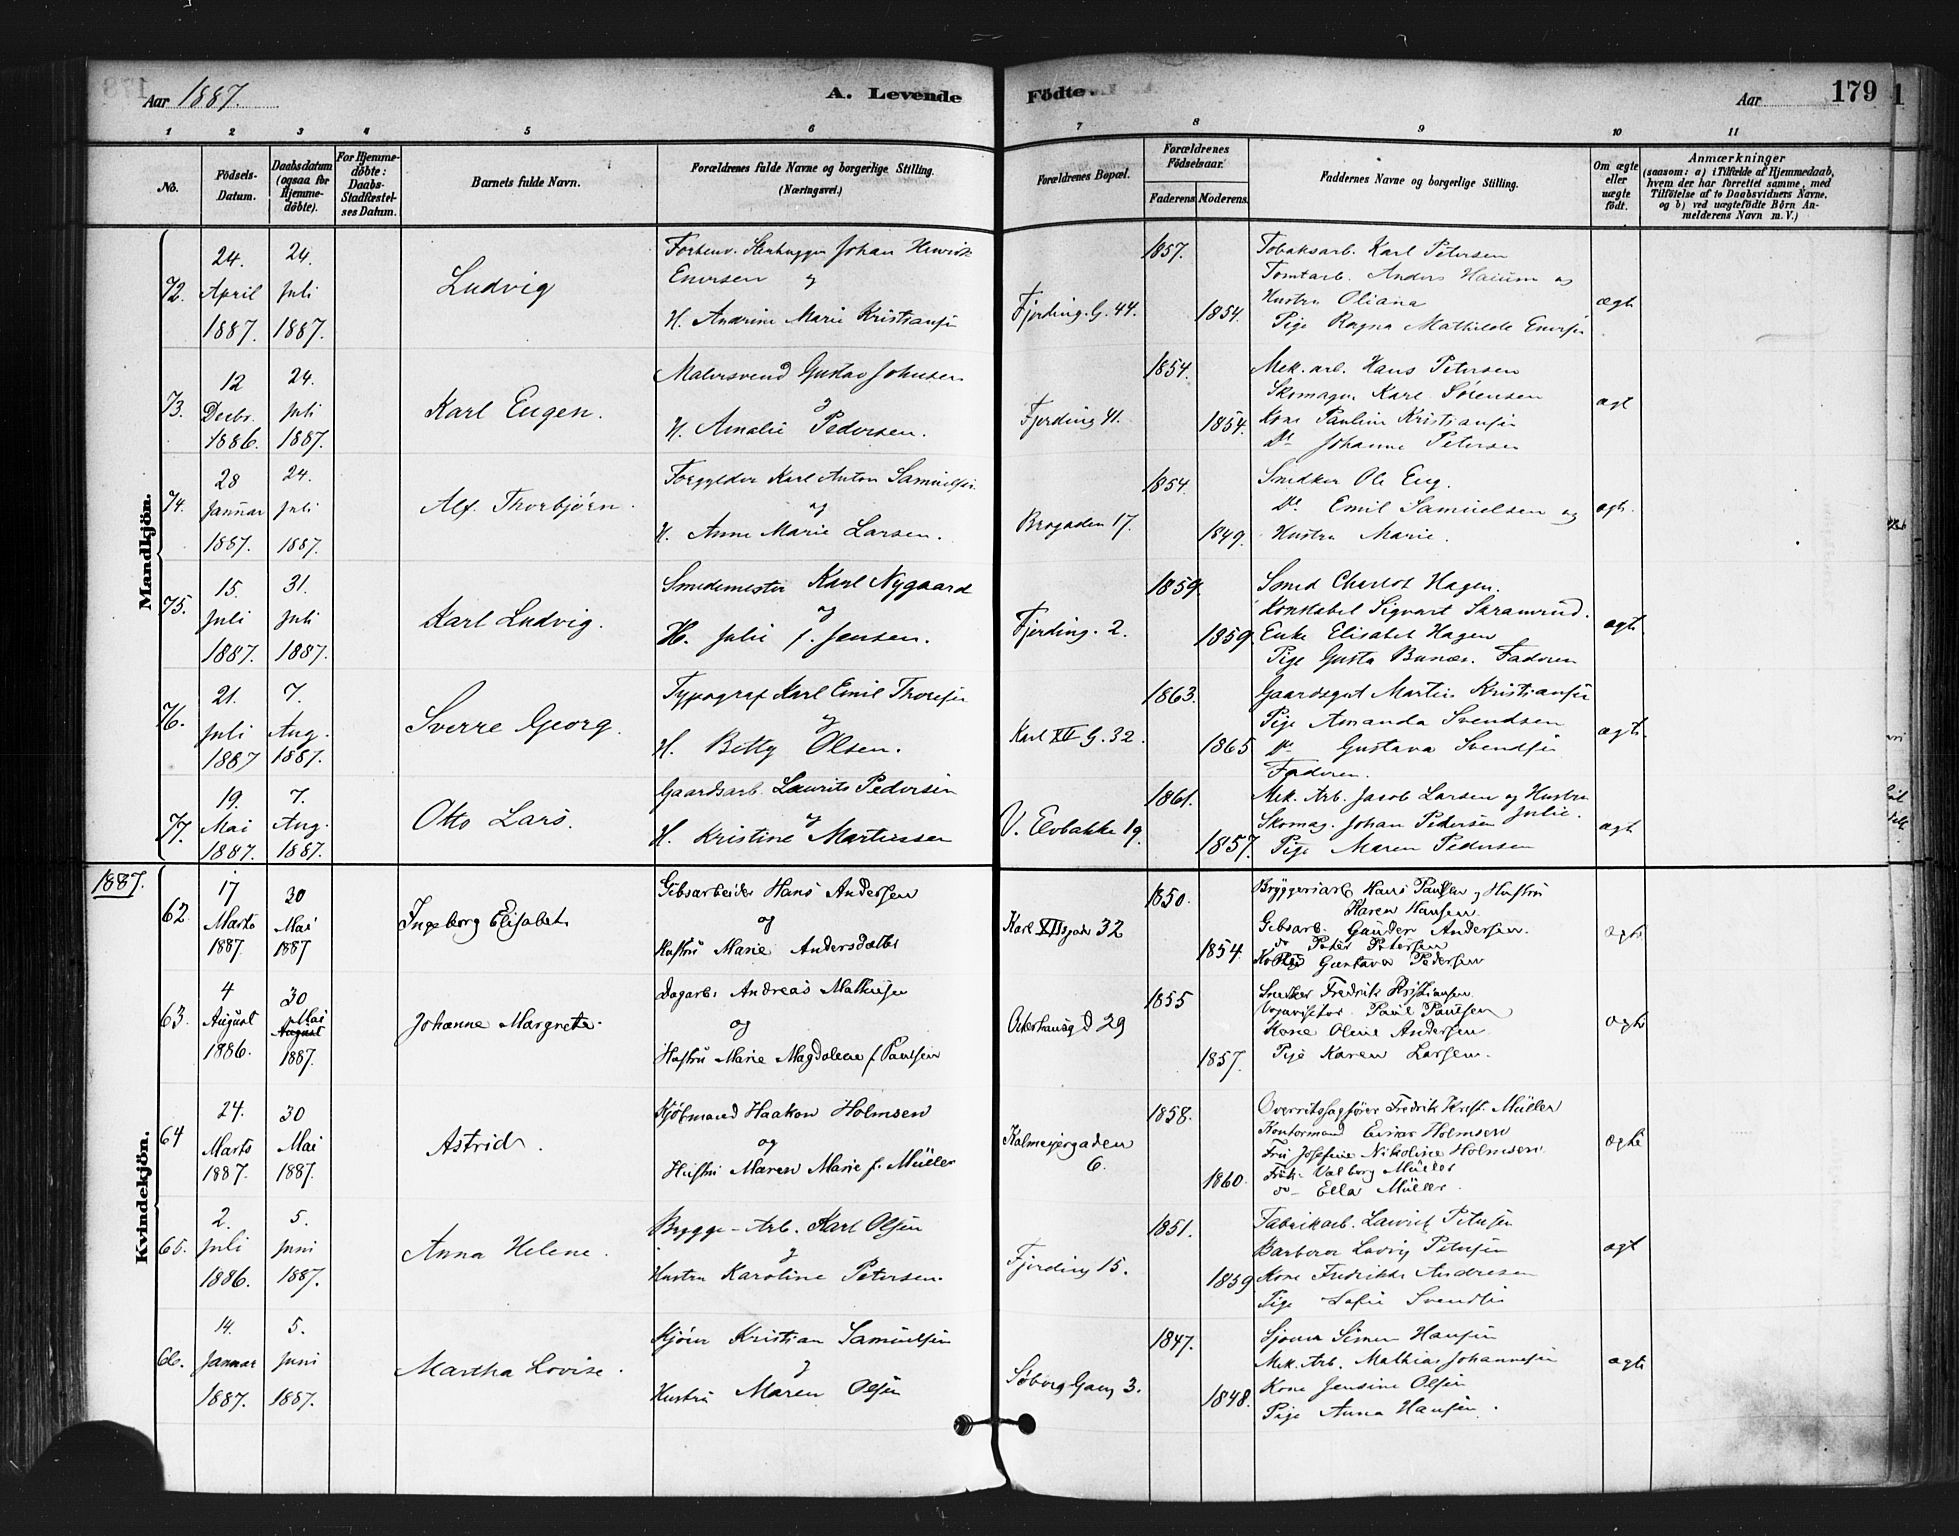 Aar 1887. A. Levende Födte. Aar 179
1 2 3 4 5 6 7 8 9 10 11
No. Födsels-Datum. Daabsdatum (ogsaa for Hjemme-döbte). For Hjemme-döbte: Daabs-Stadfæstel-ses Datum. Barnets fulde Navn. Forældrenes fulde Navne og borgerlige Stilling. (Næringsvei.) Forældrenes Bopæl. Forældrenes Födselsaar. Faderens. Moderens. Faddernes Navne og borgerlige Stilling. Om ægte eller uægte födt. Anmærkninger (saasom: a) i Tilfælde af Hjemmedaab, hvem der har forrettet samme, med Tilföielse af to Daabsvidners Navne, og b) ved uægtefödte Börn An-melderens Navn m. V.)
Mandkjön.
72. 24. April 1887. 24. Juli 1887. Ludvig
Johan Henrik Enersen og
H. Andrine Marie Kristiansen
Fjerding. G. 44. 1857. 1854.
Tobaksarb. Karl Petersen
Tomtarb. Anders og
Hustru Oliana
Pige Ragna Mathilde Enersen
ægte
73. 12 Decbr. 1886. 24. Juli 1887. Karl Eugen.
Malersvend Gustav Johnsen
og
H. Amalie Pedersen.
Fjerding 41. 1854. 1854.
Mek. arb. Hans Petersen
Skomager Karl Sörensen
Kone Pauline Kristiansen
Do Johanne Petersen
ægt
74. 28 Januar 1887. 24. Juli 1887. Alf Thorbjörn.
Forgylder Karl Anton Samuelsen
og
H. Anne Marie Larsen.
Brogaden 17. 1854. 1849.
Snedker Ole Eng.
Do. Emil Samuelsen og
Hustru Marie.
ægte.
75. 15. Juli 1887. 31. Juli 1887. Karl Ludvig.
Smedemester Karl Nygaard
og
H. Julie f. Jensen.
Fjerding. 2. 1859. 1859.
Smed Charlot Hagen.
Konstabel Sigvart Skramrud.
Enke Elisabet Hagen
Pige Gusta Bunæs. Faderen
ægte
76. 21. Juli 1887 7. Aug. 1887. Sverre Georg.
Typograf Karl Emil Thoresen
og
H. Betty Olsen.
Karl XII G. 32. 1863. 1865
Gaardsgut Martin Kristiansen
Pige Amanda Svendsen
Do Gustava Svendsen
Faderen.
ægte
77. 19. Mai 1887. 7. Aug. 1887. Otto Lars.
Gaardsarb. Laurits Pedersen
og
H. Kristine Martinsen
V. Elvbakke 19. 1861. 1857.
Mek. Arb. Jacob Larsen og Hustru
Julie.
Skomag. Johan Pedersen
Pige Maren Pedersen
ægt
1887.
Kvindekjön.
62. 17 Marts 1887. 30 Mai 1887 Ingeborg Elisabet
Gibsarbeider Hans Andersen
og
Hustru Marie Andersdatter
Karl XIIsgade 32 1850. 1854.
Bryggeriarb Hans Paulsen og Hustru
Karen Hansen
Gibsarb. Gunder Andersen.
do Peter Petersen
Gustava Pedersen
ægte
63. 4 August 1886. 30 Mai August 1887. Johanne Margrete.
Dagarb. Andreas Mathisen
og
Hustru Marie Magdalene f. Paulsen
Akershusg d 29 1855 1857.
Snedker Fredrik Kristiansen
Paul Paulsen
Kone Oline Andersen
Pige Karen Larsen.
ægte
64 24. Marts 1887. 30 Mai 1887. Astrid.
Kjöbmand Haakon Holmsen
og
Hustru Maren Marie f. Müller
Kalmeyergaden 6. 1858. 1860.
Overretssagförer Fredrik Krist. Müller
Kontormand Einar Holmsen
Fru Josefine Nikoline Holmsen
Frök. Valborg Müller
do - Ella Müller.
ægte
65. 2. Juli 1886. 5. Juni 1887. Anna Helene.
Brygge-Arb. Karl Olsen
og
Hustru Karoline Petersen.
Fjerding 15. 1851. 1859
Fabrikarb. Laurits Petersen
Barberer Ludvig Petersen
Kone Fredrikke Andresen
Pige Sofie Svendsen
ægt
66. 14. Januar 1887. 5. Juni 1887. Martha Lovise.
Kjörer Kristian Samuelsen
og
Hustru Maren Olsen
Söborg Gang 3. 1847. 1848.
Sjömd Simen Hansen
Mek. Arb. Mathias Johannesen
Kone Jensine Olsen
Pige Anna Hansen.
ægte